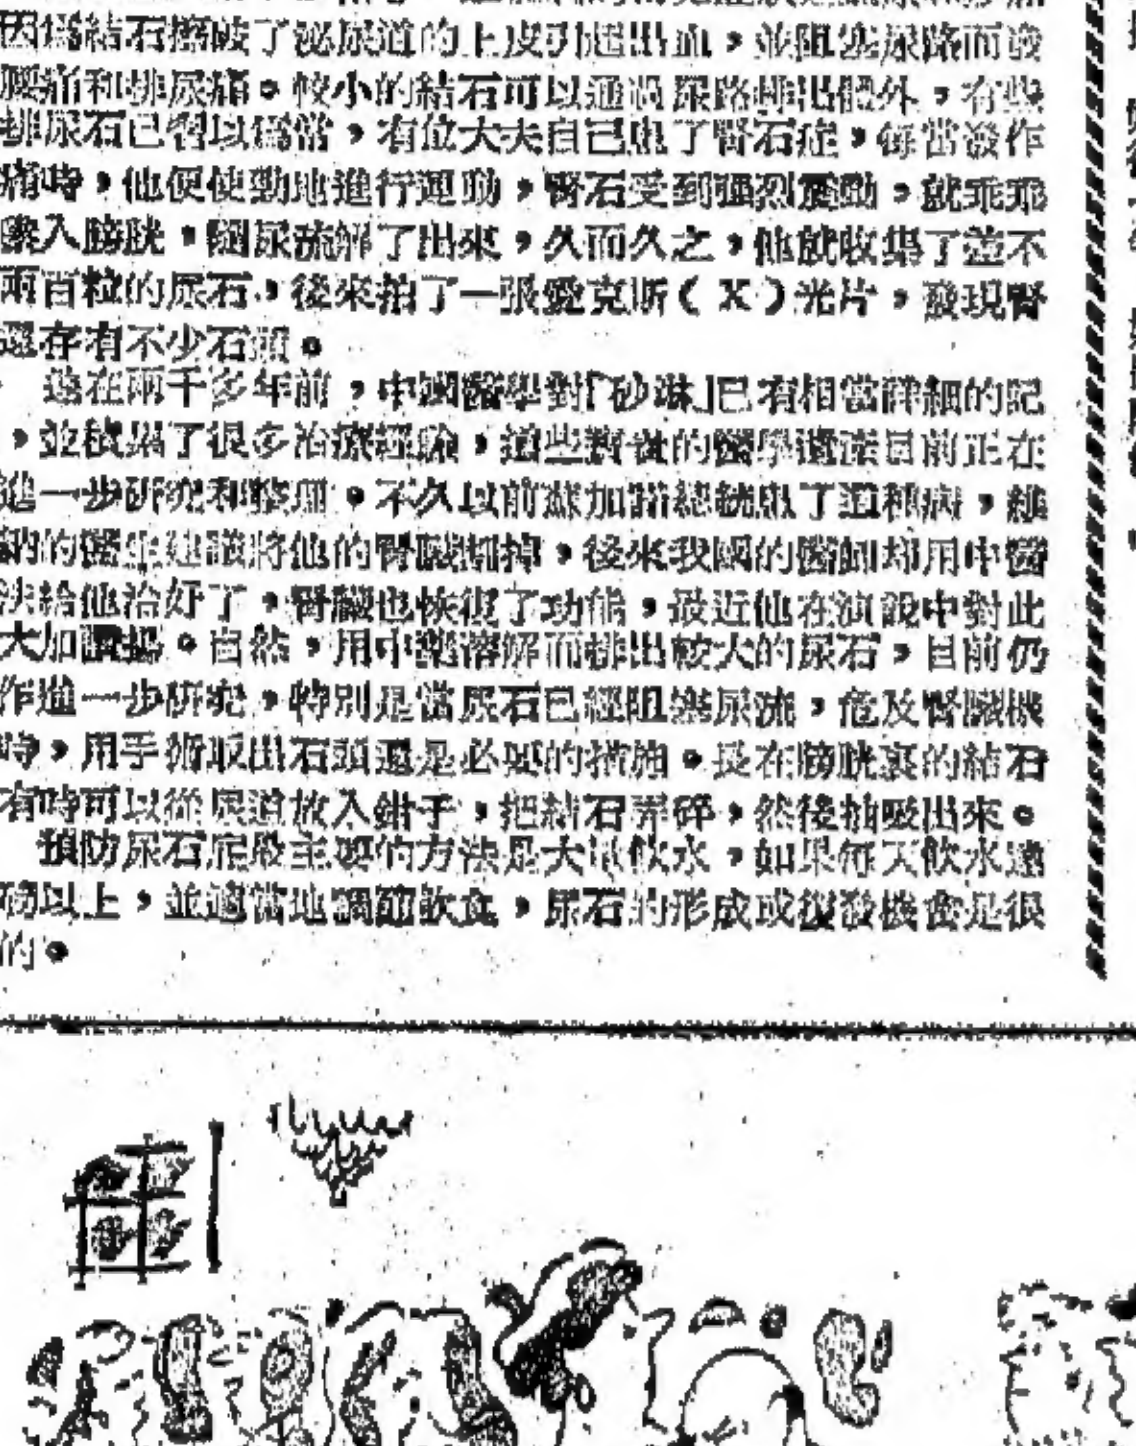 因爲結石擦破了泌尿道的上皮引起出血，並阻塞尿路而發
腰痛和排尿痛。較小的結石可以通過尿路排出體外，有些
排尿石已習以爲常，有位大夫自己患了腎石症，每當發作
痛時，他便使勁地進行運動，腎石受到强烈震動，就乖乖
墜入膀胱，隨尿流解了出來，久而久之，他就收集了差不
兩百粒的尿石，後來拍了一張愛克斯（X）光片，發現腎
還存有不少石頭。
遠在兩千多年前，中國醫學對「砂淋」已有相當詳細的記
，並積累了很多治療經驗，這些寶貴的醫學遺產目前正在
進一步研究和整理。不久以前蘇加諾總統患了這種病，維
納的醫生建議將他的腎臟割掉，後來我國的醫師却用中醫
法給他治好了，腎臟也恢復了功能，最近他在演說中對此
大加讚揚。自然，用中藥溶解而排出較大的尿石，目前仍
作進一步研究，特別是當尿石已經阻塞尿流，危及腎臟機
時，用手術取出石頭還是必要的措施。長在膀胱裏的結石
有時可以從尿道放入鉗子，把結石弄碎，然後抽吸出來。
預防尿石症最主要的方法是大量飲水，如果每天飲水達
磅以上，並適當地調節飲食，尿石的形成或復發機會是很
的。